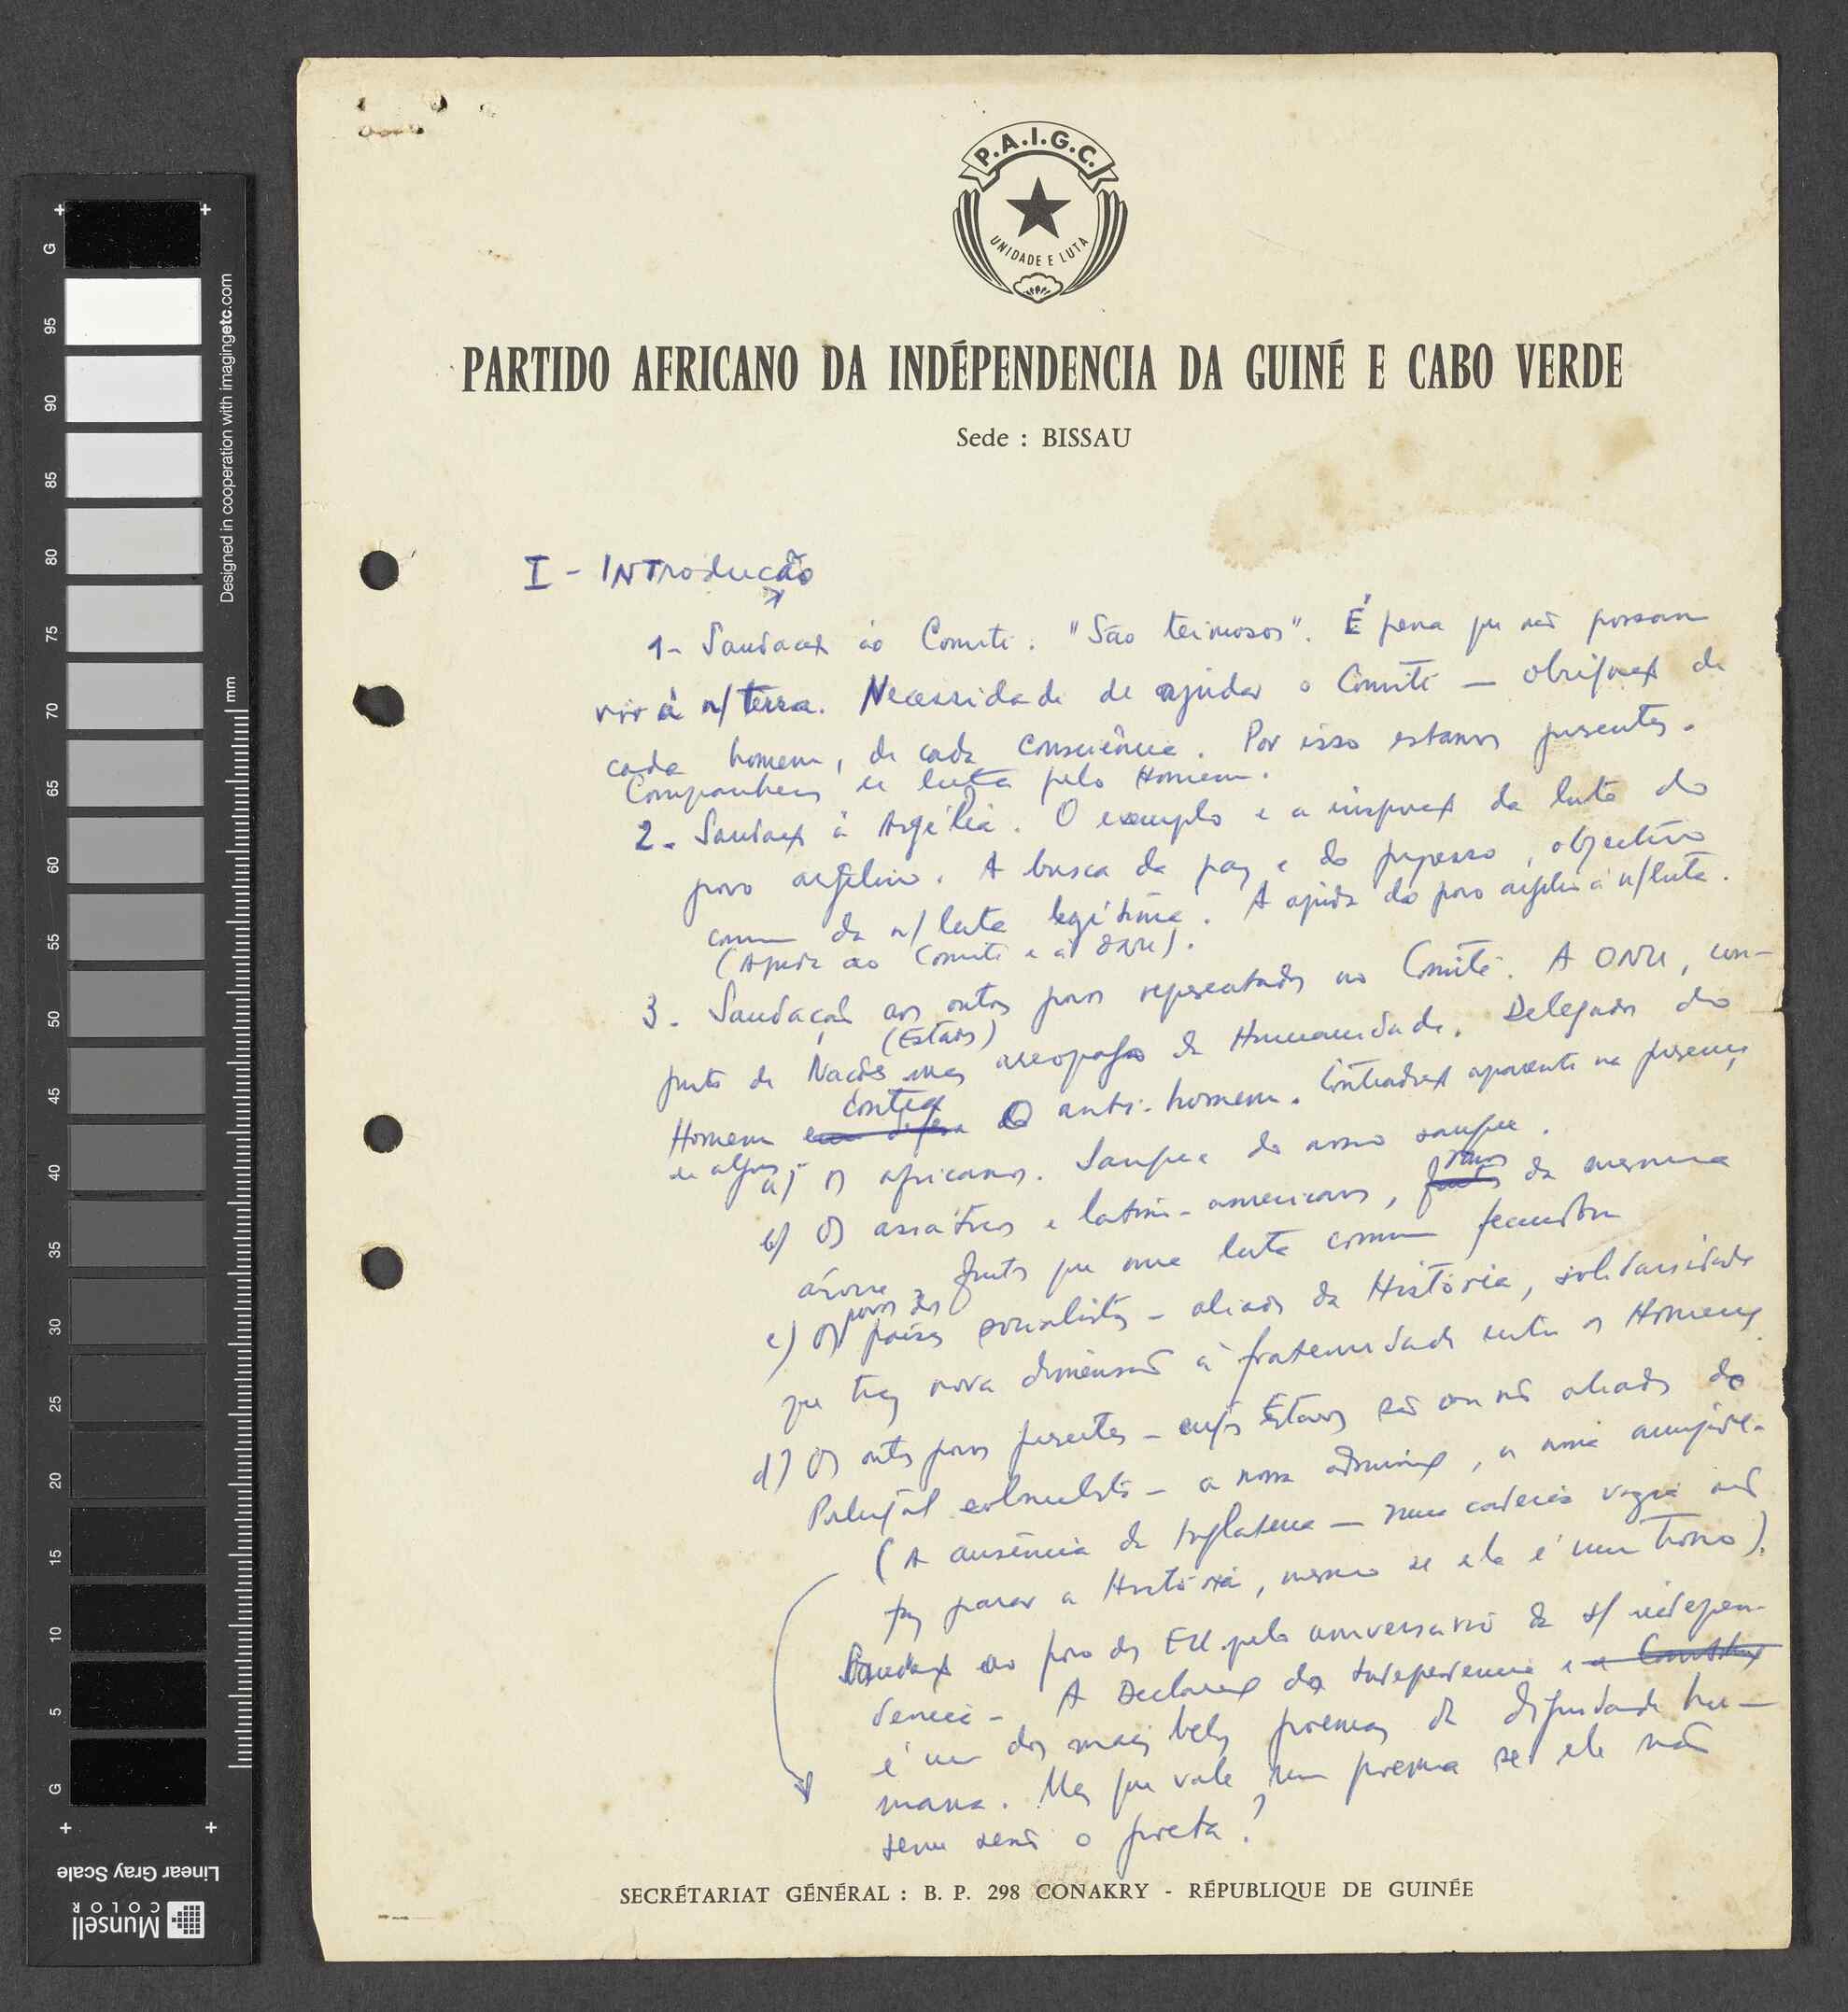 P.A.I.G.C.
UNIDADE E LUTA
PARTIDO AFRICANO DA INDÉPENDENCIA DA GUINÉ E CABO VERDE
Sede : BISSAU
I - INTrodução
1- Saudaçx ao Comité. "São teimosos". É pena que não possam
vir à n/ terra. Necessidade de ajudar o Comité — obrigaçx de
cada homem, de cada consciência. Por isso estamos presentes.
Companheiros de luta pelo Homem.
2- Saudaçx à Argélia. O exemplo e a inspiraçx da luta do
povo argelino. A busca da paz e do progresso, objectivo
comum da n/ luta legítima. A ajuda do povo argelino à n/ luta.
(Ajuda ao Comité e à ONU).
3- Saudação aos outros povos representados no Comité. A ONU, con-
(Estados)
junto de Nações mas areopago da Humanidade. Delegados do
contra
Homem em defesa O anti-homem. Contradiçx aparente na presença
de alguns
a) Os africanos. Sangue do nosso sangue.
ramos
b) Os asiáticos e latino-americanos, da mesma
árvore, frutos que uma luta comum fecundou
povos dos
c) Os países socialistas - aliados da História, solidariedade
que traz nova dimensão à fraternidade entre os Homens
d) Os outros povos presentes - cujos Estados são ou não aliados do
Portugal colonialista - a nossa, a nossa
(A ausência da Inglaterra — uma cadeira vazia não
faz parar a História, mesmo se ela é um trono).
Saudaçx ao povo dos EU. pelo aniversário da s/ indepen-
dencia - A Declaraçx da Independencia e a
é um dos mais belos poemas da dignidade hu-
mana. Mas que vale um poema se ele não
serve senão o poeta?
SECRÉTARIAT GÉNÉRAL : B. P. 298 CONAKRY - RÉPUBLIQUE DE GUINÉE
G
95
90
85
80
75
70
65
60
55
50
45
40
35
30
25
20
15
10
5
G
mm
Designed in cooperation with imagingetc.com
Linear Gray Scale
Munsell
COLOR